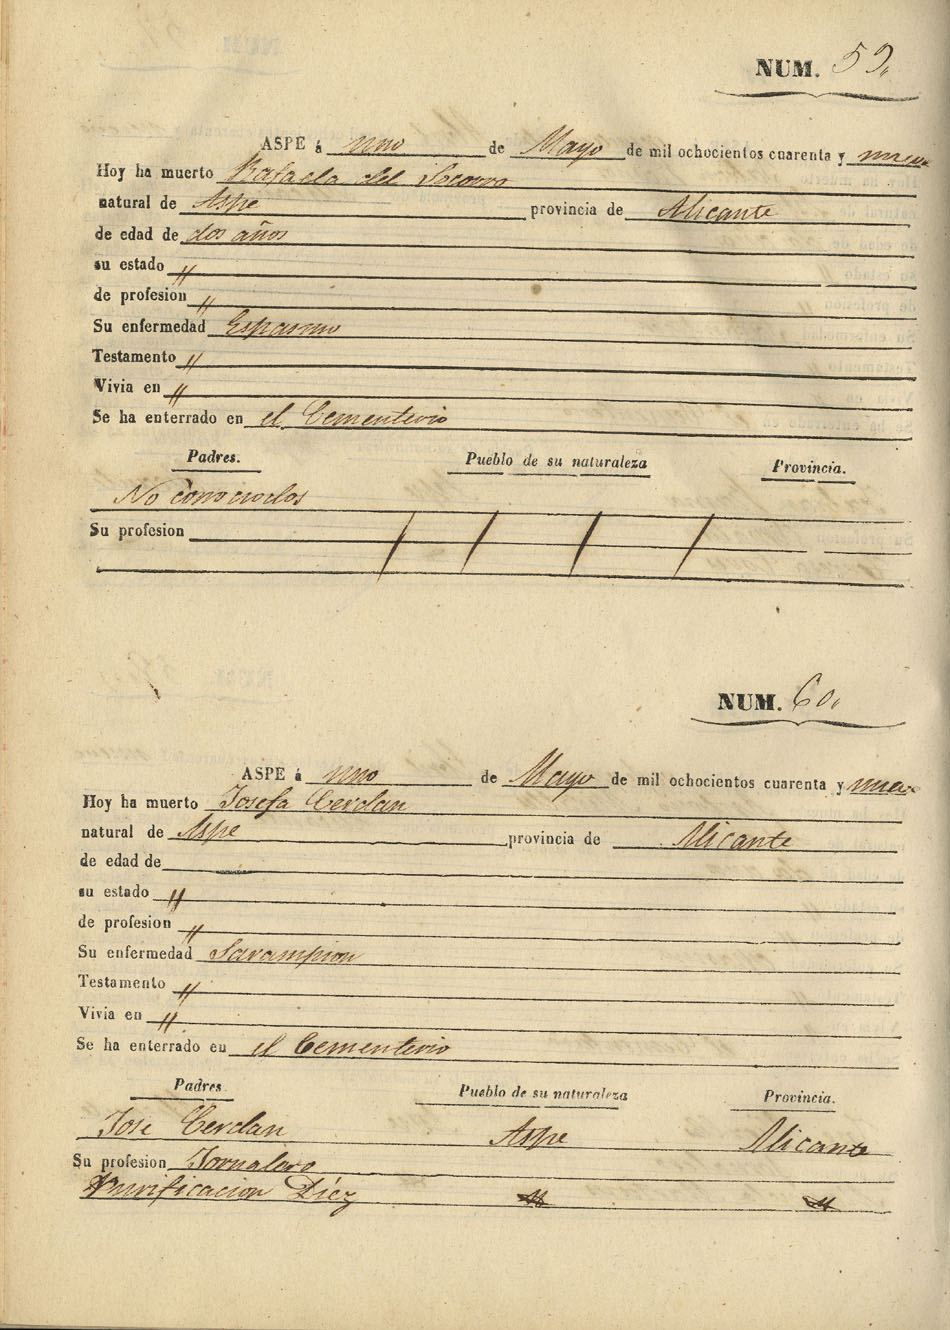 NUM. 59.
ASPE á uno de Mayo de mil ochocientos cuarenta y nueve
Hoy ha muerto Rafaela del Socorro
natural de Aspe provincia de Alicante
de edad de dos años
su estado "
de profesion "
Su enfermedad Espasmo
Testamento "
Vivia en "
Se ha enterrado en el Cementerio
Padres. Pueblo de su naturaleza Provincia.
No conocidos
Su profesion
NUM. 60.
ASPE á uno de Mayo de mil ochocientos cuarenta y nueve
Hoy ha muerto Josefa Cerdan
natural de Aspe provincia de Alicante
de edad de
su estado "
de profesion "
Su enfermedad Sarampion
Testamento "
Vivia en "
Se ha enterrado en el Cementerio
Padres. Pueblo de su naturaleza Provincia.
Jose Cerdan Aspe Alicante
Su profesion Jornalero
Purificacion Díez " "